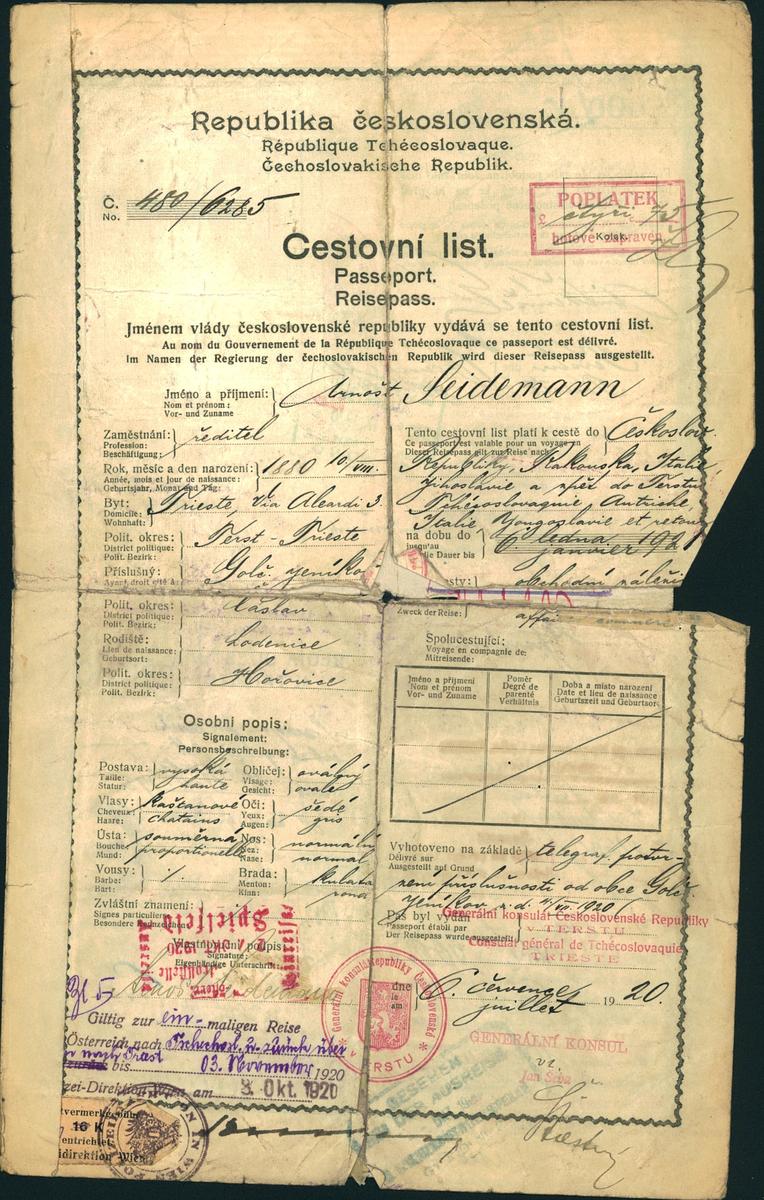 Republika československá.
République Tchécoslovaque.
Čechoslovakische Republik.
Č. No. 480/6285
POPLATEK
čtyři
Kolek.
hotově zapraven
Cestovní list.
Passeport.
Reisepass.
Jménem vlády československé republiky vydává se tento cestovní list.
Au nom du Gouvernement de la République Tchécoslovaque ce passeport est délivré.
Im Namen der Regierung der čechoslovakischen Republik wird dieser Reisepass ausgestellt.
Jméno a příjmení: Arnošt Seidemann
Nom et prénom:
Vor- und Zuname
Zaměstnání: ředitel
Profession:
Beschäftigung:
Rok, měsíc a den narození: 1880 10/VIII.
Année, mois et jour de naissance:
Geburtsjahr, Monat und Tag:
Byt: Trieste, Via Aleardi 3
Domicile:
Wohnhaft:
Polit. okres: Terst - Trieste
District politique:
Polit. Bezirk:
Příslušný: Golč. Jeníkov
Ayant droit cité à
Polit. okres: Čáslav
District politique:
Polit. Bezirk:
Rodiště: Lodenice
Lieu de naissance:
Geburtsort:
Polit. okres: Hořovice
District politique:
Polit. Bezirk:
Tento cestovní list platí k cestě do Českoslov.
Ce passeport est valable pour un voyage en
Dieser Reisepass gilt zur Reise nach
Republiky, Rakouska, Italie,
Jihoslavie a zpět do Terstu
Tchécoslovaquie, Autriche,
Italie Yougoslavie et retour
na dobu do 6. ledna 1921
jusqu'au janvier
die Dauer bis
obchodní záležit
Zweck der Reise: affai commerc
Spolucestující:
Voyage en compagnie de:
Mitreisende:
Jméno a příjmení
Nom et prénom
Vor- und Zuname
Poměr
Degré de parenté
Verhältnis
Doba a místo narození
Date et lieu de naissance
Geburtszeit und Geburtsort
Osobní popis:
Signalement:
Personsbeschreibung:
Postava: vysoká
Taille: haute
Statur:
Obličej: oválný
Visage: ovale
Gesicht:
Vlasy: kaštanové
Cheveux: chatains
Haare:
Oči: šedé
Yeux: gris
Augen:
Ústa: souměrná
Bouche: proportionelle
Mund:
Nos: normální
Nez: normal
Nase:
Vousy:
Barbe:
Bart:
Brada: kulatá
Menton: rond
Kinn:
Zvláštní znamení:
Signes particuliers
Besondere Kennzeichen:
Vlastnoruční popis:
Signature:
Eigenhändige Unterschrift:
Vyhotoveno na základě telegraf. potvr-
Délivré sur
Ausgestellt auf Grund
zení příslušnosti od obce Golč.
Jeníkov z. d. /VII. 1920
Pas byl vydán
Passeport établi par
Der Reisepass wurde ausgestellt
Generální konsulát Československé Republiky
v TERSTU
Consulat général de Tchécoslovaquie
TRIESTE
dne
le
am
6. července 1920.
juillet
Generální konsulát Republiky Československé
v TERSTU
GENERÁLNÍ KONSUL
Jan Šeba
Einreise
Spielfeld
OKT. 1920
Zollstelle
Giltig zur ein-maligen Reise
Österreich nach Tschechosl. u. zurück über
bis 03. November 1920
zei-Direktion Wien am 3. Okt. 1920
16 K
entrichtet
idirektion Wien